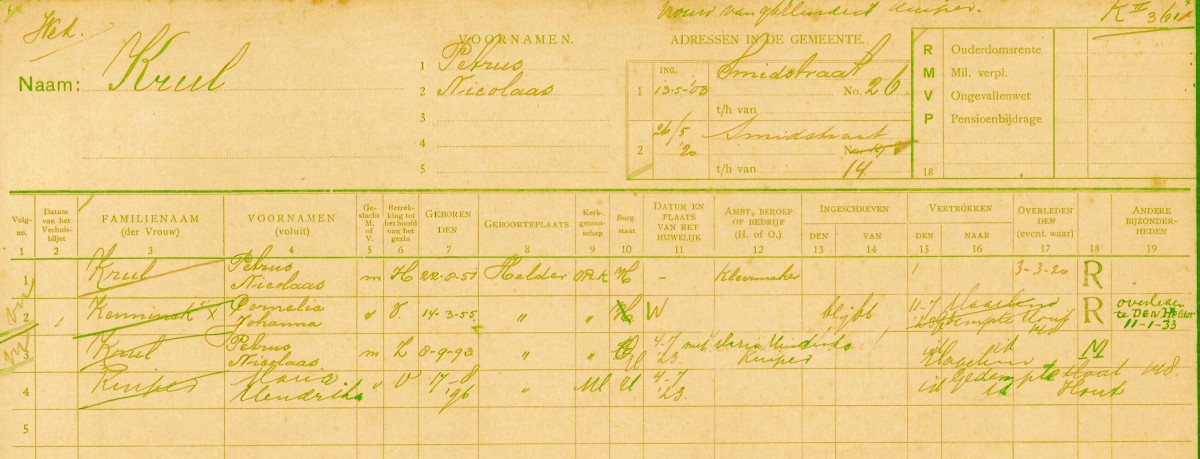 Wed.
Naam: Krul
VOORNAMEN.
1 Petrus
2 Nicolaas
3
4
5
vrouw van Kuiper.
K II 3/61
ADRESSEN IN DE GEMEENTE.
ING.
1 13-5-'08 Smidstraat
No. 26
t/h van
2 26/5 '20 Smidstraat
No.
t/h van 14
R Ouderdomsrente
M Mil. verpl.
V Ongevallenwet
P Pensioenbijdrage
18
Volg-no. Datum van het Verhuis-biljet FAMILIENAAM (der Vrouw) VOORNAMEN (voluit) Ge-slacht M. of V. Betrek-king tot het hoofd van het gezin GEBOREN DEN GEBOORTEPLAATS Kerk-genoot-schap Burg. staat DATUM EN PLAATS VAN HET HUWELIJK AMBT, BEROEP OF BEDRIJF (H. of O.) INGESCHREVEN DEN VAN VERTROKKEN DEN NAAR OVERLEDEN DEN (event. waar) ANDERE BIJZONDER-HEDEN
1 2 3 4 5 6 7 8 9 10 11 12 13 14 15 16 17 18 19
1 Krul Petrus Nicolaas m H 22-8-51 Helder R.k H - Kleermaker 3-3-20 R
2 Kenninck x Cornelia Johanna " V 14-3-55 " " W blijft 11-7 R overleden te DEN Helder 11-1-33
3 Krul Petrus Nicolaas m Z 8-9-93 " " 4-7 '23. met Maria Hendrika Kuiper M
4 Kuiper Maria Hendrika " V 17-8 '96 " 4-7 '23. Gedempte 148.
5